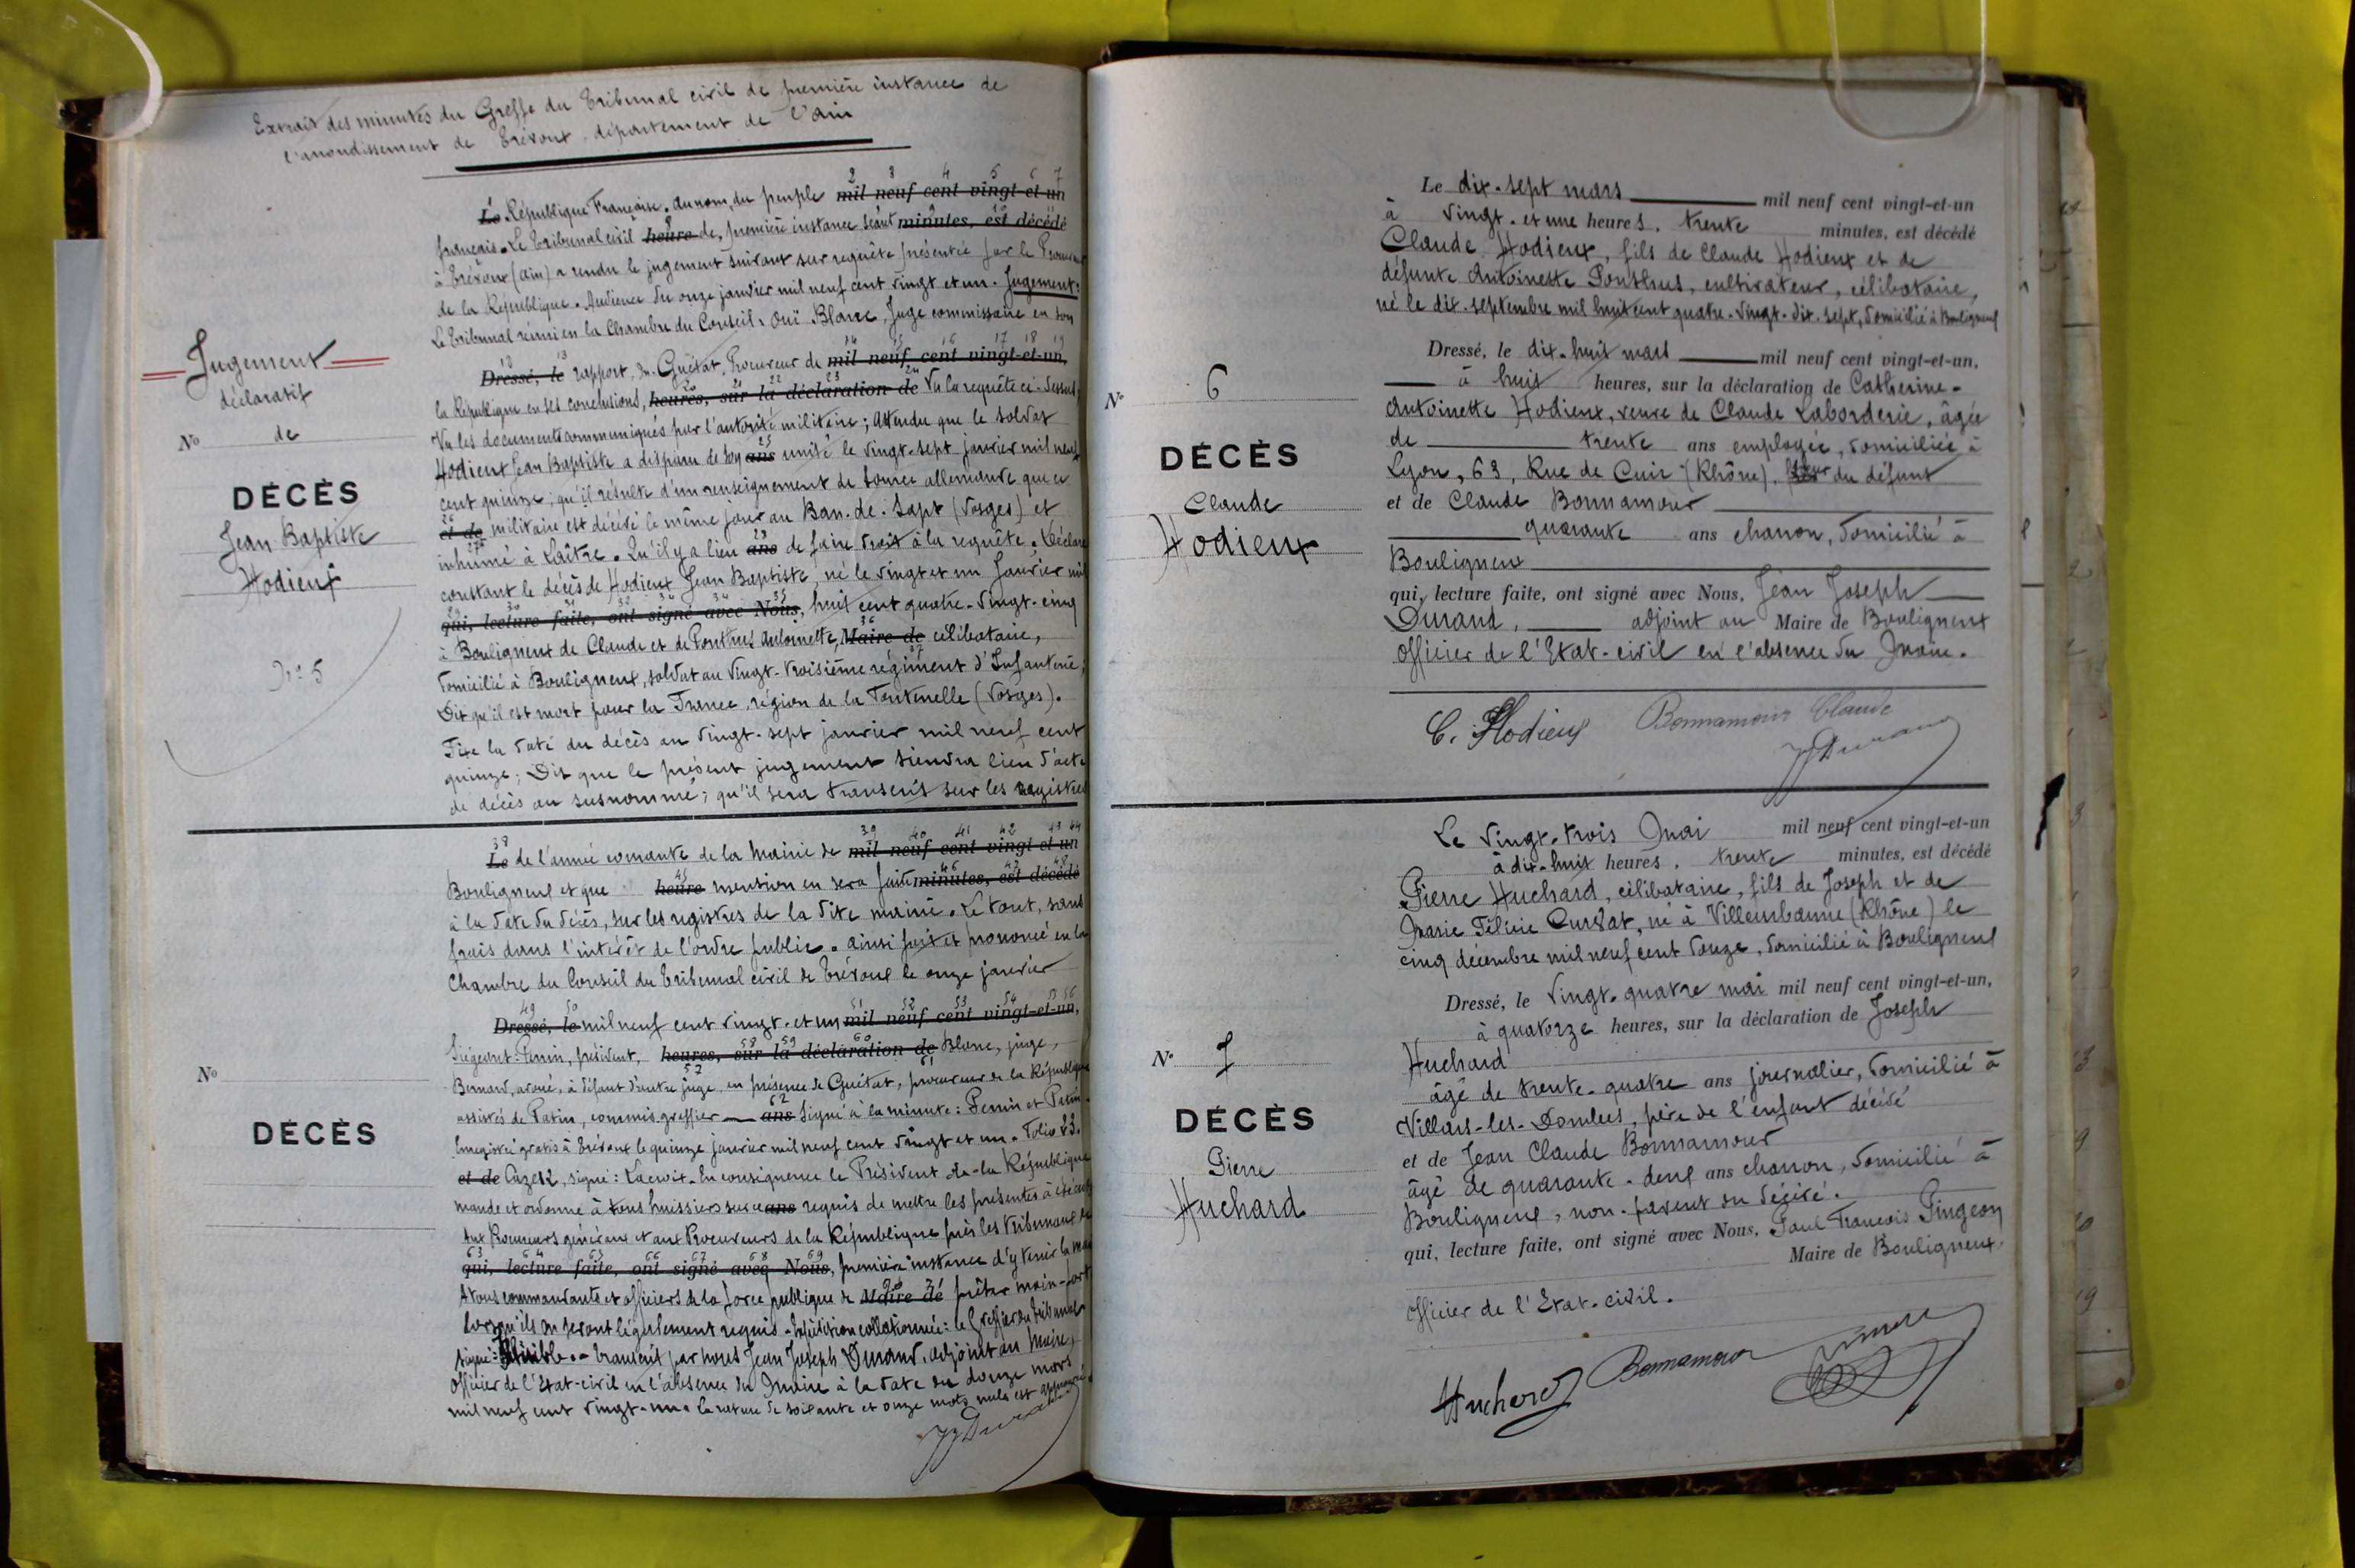 Extrait des minutes du Greffe du Tribunal civil de première instance de
l'arrondissement de Trévoux, département de l'Ain
Jugement
déclaratif
No de
DÉCÈS
Jean Baptiste
Hodieux
No 5
1 2 3 4 5 6 7
Le République Française. Au nom du peuple mil neuf cent vingt-et-un
français. Le Tribunal civil heure de première instance séant minutes, est décédé
à Trévoux (Ain) a rendu le jugement suivant sur requête présentée par le Procureur
de la République. Audience du onze janvier mil neuf cent vingt et un. Jugement:
Le Tribunal réuni en la Chambre du Conseil. Ouï Blanc, Juge commissaire en son
Dressé, le rapport, Mr Guétat, Procureur de mil neuf cent vingt-et-un,
la République en ses conclusions, heures, sur la déclaration de Vu la requête ci-dessus,
Vu les documents communiqués par l'autorité militaire; Attendu que le soldat
Hodieux Jean Baptiste a disparu de son ans unité le vingt-sept janvier mil neuf
cent quinze; qu'il résulte d'un renseignement de source allemande que ce
et de militaire est décédé le même jour au Ban-de-Sapt (Vosges) et
inhumé à Laître. Qu'il y a lieu ans de faire droit à la requête. Déclare
constant le décès de Hodieux Jean Baptiste, né le vingt et un janvier mil
qui, lecture faite, ont signé avec Nous, huit cent quatre-vingt-cinq
à Bouligneux de Claude et de Ponthus Antoinette, Maire de célibataire,
domicilié à Bouligneux, soldat au vingt-troisième régiment d'Infanterie,
Dit qu'il est mort pour la France, région de la Fontenelle (Vosges).
Fixe la date du décès au vingt-sept janvier mil neuf cent
quinze; Dit que le présent jugement tiendra lieu d'acte
de décès au susnommé; qu'il sera transcrit sur les registres
No
DÉCÈS
Le de l'année courante de la Mairie de mil neuf cent vingt-et-un
Bouligneux et que heure mention en sera faite minutes, est décédé
à la date du décès, sur les registres de la dite mairie. Le tout, sans
frais dans l'intérêt de l'ordre public. Ainsi fait et prononcé en la
Chambre du Conseil du Tribunal civil de Trévoux le onze janvier
Dressé, le mil neuf cent vingt-et-un mil neuf cent vingt-et-un,
Siégeant: Perrin, président, heures, sur la déclaration de Blanc, juge,
Bernard, avoué, à défaut d'autre juge, en présence de Guétat, procureur de la République
assistés de Patin, commis greffier ans Signé à la minute: Perrin et Patin.
Enregistré gratis à Trévoux le quinze janvier mil neuf cent vingt et un. Folio 83.
et de Case 12, signé: Lacroix. En conséquence le Président de la République
mande et ordonne à tous huissiers sur ce ans requis de mettre les présentes à exécution
Aux Procureurs généraux et aux Procureurs de la République près les Tribunaux de
qui, lecture faite, ont signé avec Nous, première instance d'y tenir la main
A tous commandants et officiers de la force publique de Maire de prêter main-forte
lorsqu'ils en seront légalement requis. Expédition collationnée: le Greffier du tribunal
signé: Illisible. Transcrit par nous Jean Joseph Durand, adjoint au Maire,
Officier de l'Etat-civil en l'absence du Maire à la date du douze mars
mil neuf cent vingt-un. La rature de soixante et onze mots nuls est approuvée.
JJ Durand
No 6
DÉCÈS
Claude
Hodieux
Le dix-sept mars mil neuf cent vingt-et-un
à vingt-et-une heures, trente minutes, est décédé
Claude Hodieux, fils de Claude Hodieux et de
défunte Antoinette Ponthus, cultivateur, célibataire,
né le dix-septembre mil huit cent quatre-vingt-dix-sept, domicilié à Bouligneux
Dressé, le dix-huit mars mil neuf cent vingt-et-un,
à huit heures, sur la déclaration de Catherine-
Antoinette Hodieux, veuve de Claude Laborderie, âgée
de trente ans employée, domiciliée à
Lyon, 63, Rue de Cuir (Rhône), sœur du défunt
et de Claude Bonnamour
quarante ans charron, domicilié à
Bouligneux
qui, lecture faite, ont signé avec Nous, Jean Joseph
Durand, adjoint au Maire de Bouligneux
officier de l'Etat-civil en l'absence du Maire.
C. Hodieux Bonnamour Claude
JJ Durand
No 7
DÉCÈS
Pierre
Huchard
Le vingt-trois Mai mil neuf cent vingt-et-un
à dix-huit heures, trente minutes, est décédé
Pierre Huchard, célibataire, fils de Joseph et de
Marie Félicie Curdat, né à Villeurbanne (Rhône) le
cinq décembre mil neuf cent douze, domicilié à Bouligneux
Dressé, le vingt-quatre mai mil neuf cent vingt-et-un,
à quatorze heures, sur la déclaration de Joseph
Huchard
âgé de trente-quatre ans journalier, domicilié à
Villars-les-Dombes, père de l'enfant décédé
et de Jean Claude Bonnamour
âgé de quarante-deux ans charron, domicilié à
Bouligneux, non-parent du décédé.
qui, lecture faite, ont signé avec Nous, Paul François Pingeon
Maire de Bouligneux,
officier de l'Etat-civil.
Huchard Bonnamour